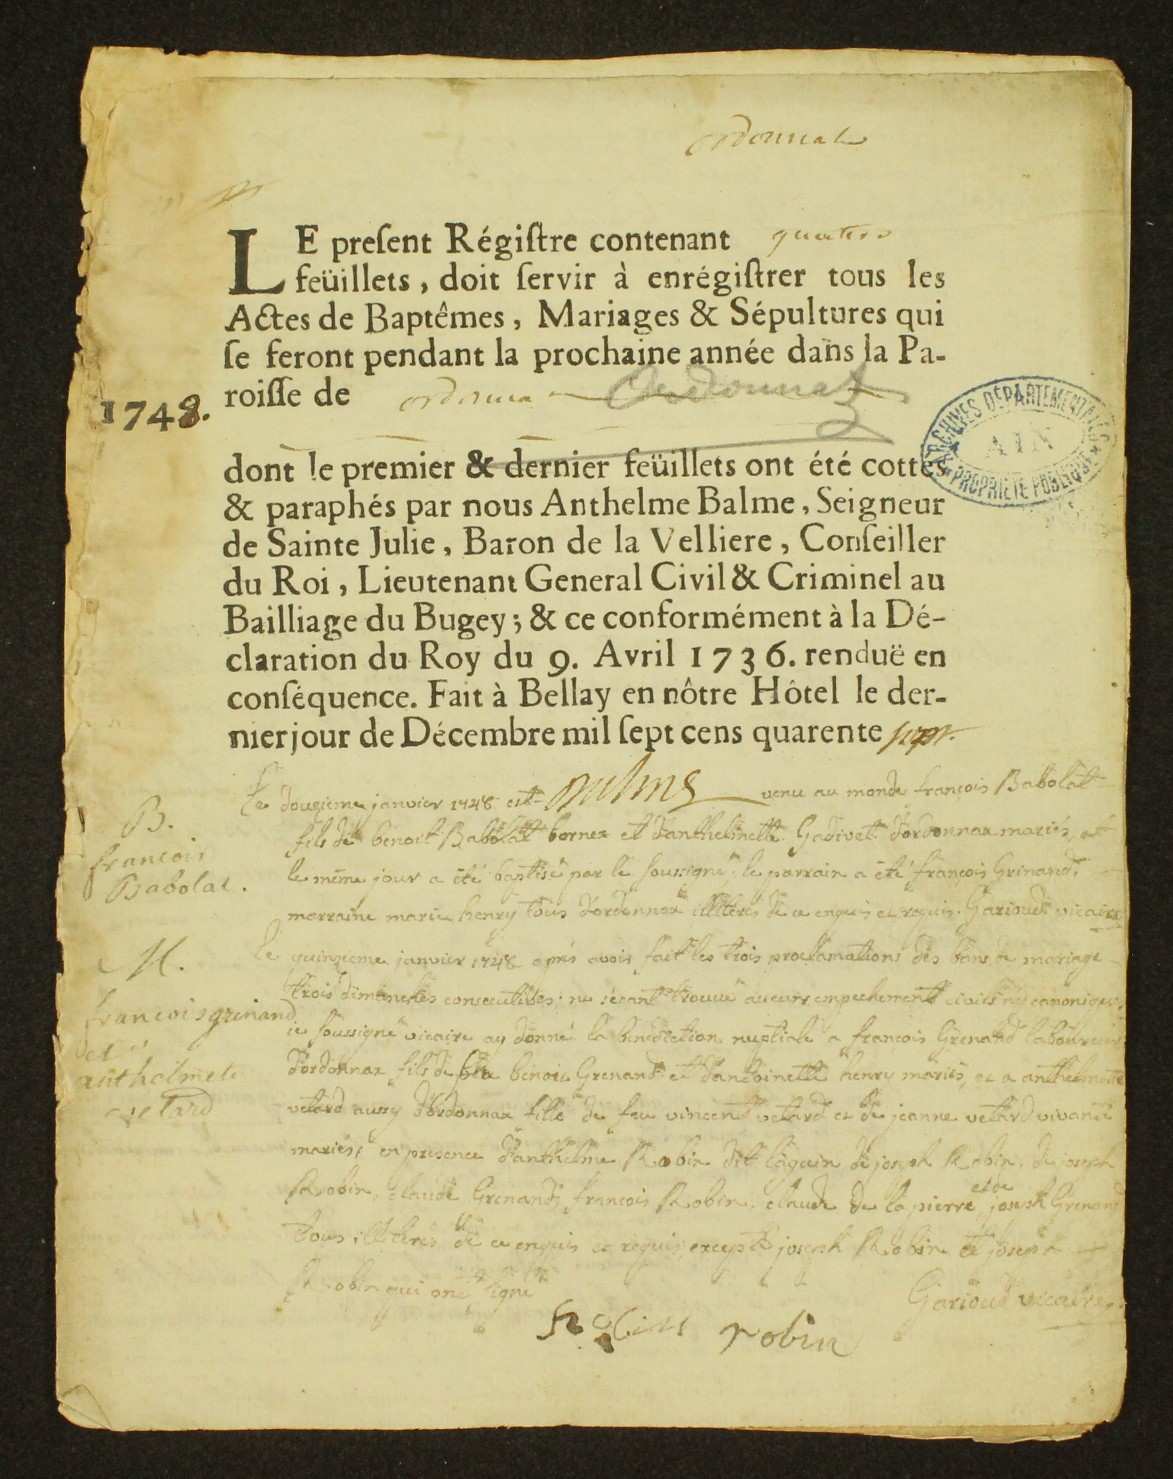 ordonnat
LE preſent Régiſtre contenant quatre
feüillets, doit ſervir à enrégiſtrer tous les
Actes de Baptêmes, Mariages & Sépultures qui
ſe feront pendant la prochaine année dans la Pa-
roiſſe de ordonna Ordonnat
1748.
ARCHIVES DÉPARTEMENTALES
AIN
PROPRIÉTÉ PUBLIQUE
dont le premier & dernier feüillets ont été cottés
& paraphés par nous Anthelme Balme, Seigneur
de Sainte Julie, Baron de la Velliere, Conſeiller
du Roi, Lieutenant General Civil & Criminel au
Bailliage du Bugey; & ce conformément à la Dé-
claration du Roy du 9. Avril 1736. renduë en
conſéquence. Fait à Bellay en nôtre Hôtel le der-
nier jour de Décembre mil ſept cens quarente sept.
Balme
B.
francois
Babolat.
Le douzieme janvier 1748 est venu au monde francois Babolat
fils de benoit Babolat bornex et d'anthelmette Gadivet d'ordonnax mariés, et
le même jour a été baptisé par le soussigné, le parrain a été françois Grinand,
marraine marie henry tous d'ordonnax illiterés de ce enquis et requis. Garioud vicaire
M.
francois grinand
et
anthelmete
vetard
Le quinzieme janvier 1748 aprés avois fait les trois proclamations des bans de mariage
trois dimanches consecutives; ne s'etant trouvé aucuns empechements civils ny canoniques,
ie soussigné vicaire ay donné la benediction nuptiale a francois Grenand laboureur
d'ordonnax fils de feu benoit Grenand et d'antoinette henry mariés, et a anthelmette
vetard aussy d'ordonnax fille de feu vincent vetard et de jeanne vetard vivants
mariés, en presence d'anthelme Robin dit de joseph Robin, de joseph
Robin, claude Grenand, francois Robin, claude de la pierre et de joseph Grenand
tous illiterés de ce enquis et requis, excepté joseph Robin et joseph
Robin qui ont signé
Garioud vicaire.
Robin robin